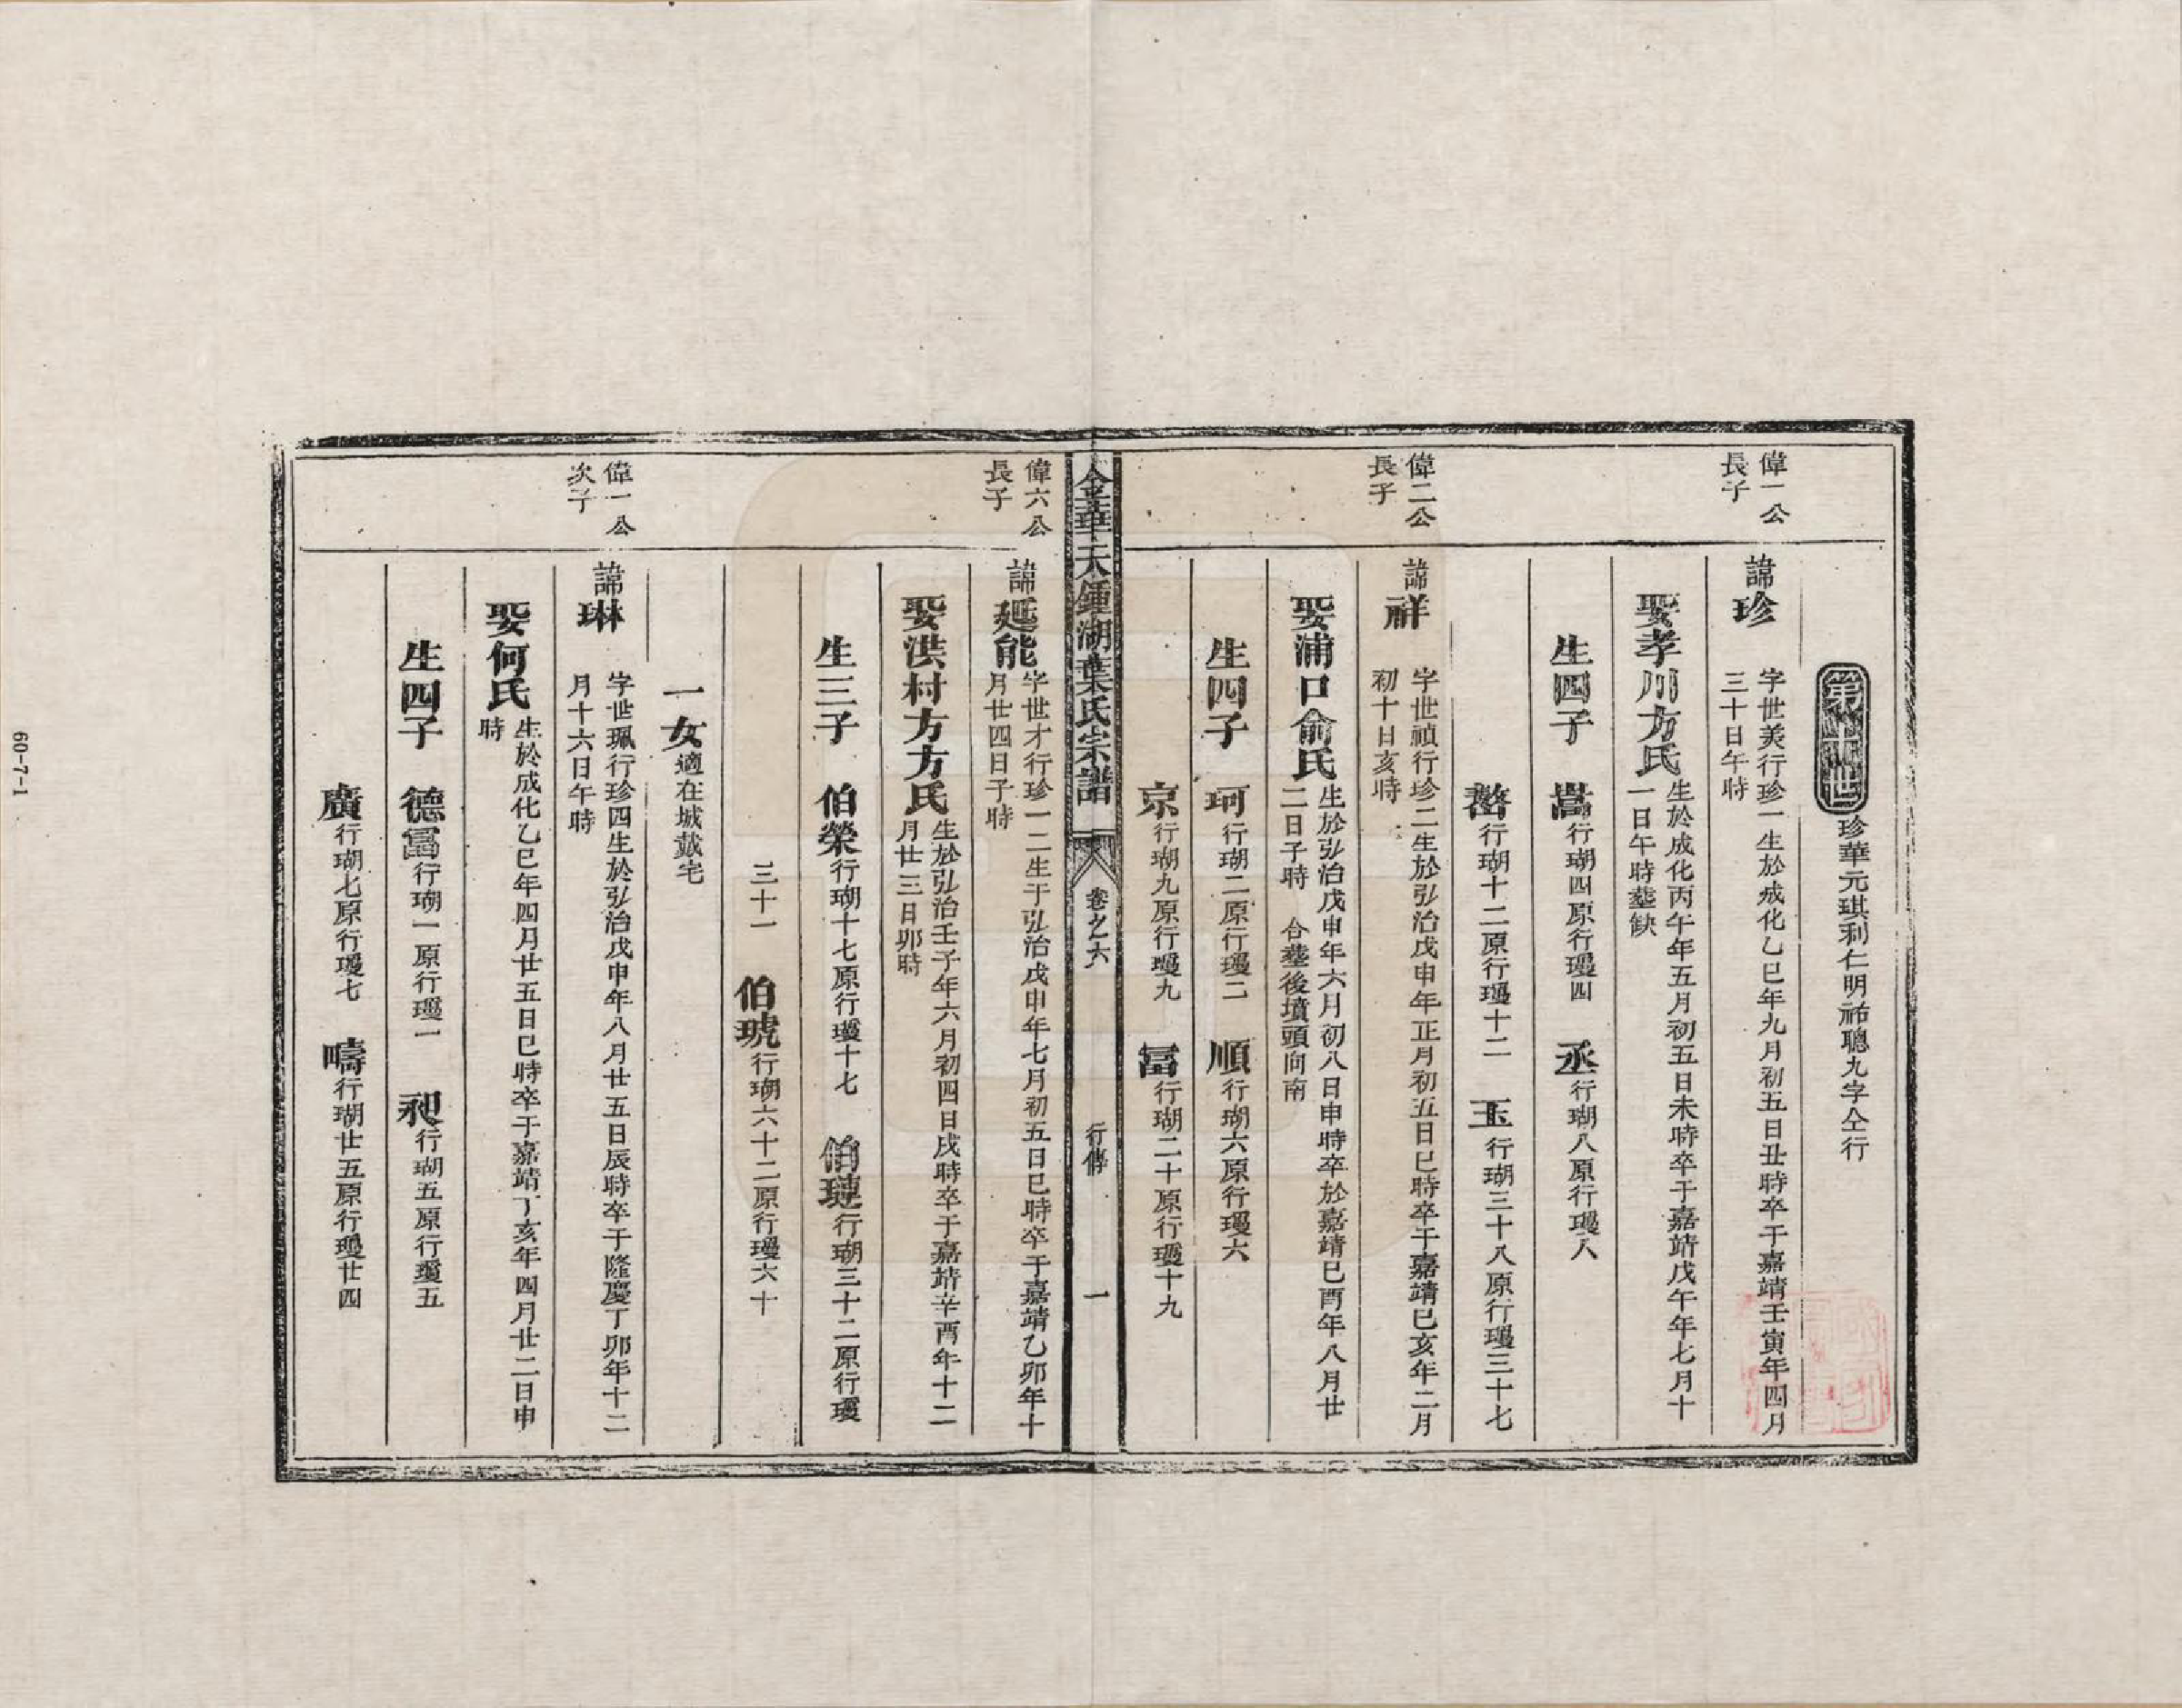 珍華元琪利仁明祐聰九字仝行
偉一公
長子
諱珍
字世美行珍一生於成化乙巳年九月初五日丑時卒于嘉靖壬寅年四月
三十日午時
娶孝川方氏
生於成化丙午年五月初五日未時卒于嘉靖戊午年七月十
一日午時塟缺
生四子 嵩行瑚四原行瓊四 丞行瑚八原行瓊八
行瑚十二原行瓊十二 玉行瑚三十八原行瓊三十七
偉二公
長子
諱祥
字世禎行珍二生於弘治戊申年正月初五日巳時卒于嘉靖已亥年二月
初十日亥時
娶浦口俞氏
生於弘治戊申年六月初八日申時卒於嘉靖已酉年八月廿
二日子時 合塟後墳頭向南
生四子 珂行瑚二原行瓊二 順行瑚六原行瓊六
京行瑚九原行瓊九 富行瑚二十原行瓊十九
金華天鍾湖葉氏宗譜
卷之六
行傳
一
偉六公
長子
諱廷能
字世才行珍一二生于弘治戊申年七月初五日巳時卒于嘉靖乙卯年十
月廿四日子時
娶洪村方方氏
生於弘治壬子年六月初四日戌時卒于嘉靖辛酉年十二
月廿三日卯時
生三子 伯榮行瑚十七原行瓊十七 伯璉行瑚三十二原行瓊
三十一 伯琥行瑚六十二原行瓊六十
一女適在城戴宅
偉一公
次子
諱琳
字世珮行珍四生於弘治戊申年八月廿五日辰時卒于隆慶丁卯年十二
月十六日午時
娶何氏
生於成化乙巳年四月廿五日巳時卒于嘉靖丁亥年四月廿二日申
時
生四子 德富行瑚一原行瓊一 昶行瑚五原行瓊五
廣行瑚七原行瓊七 疇行瑚廿五原行瓊廿四
60-7-1